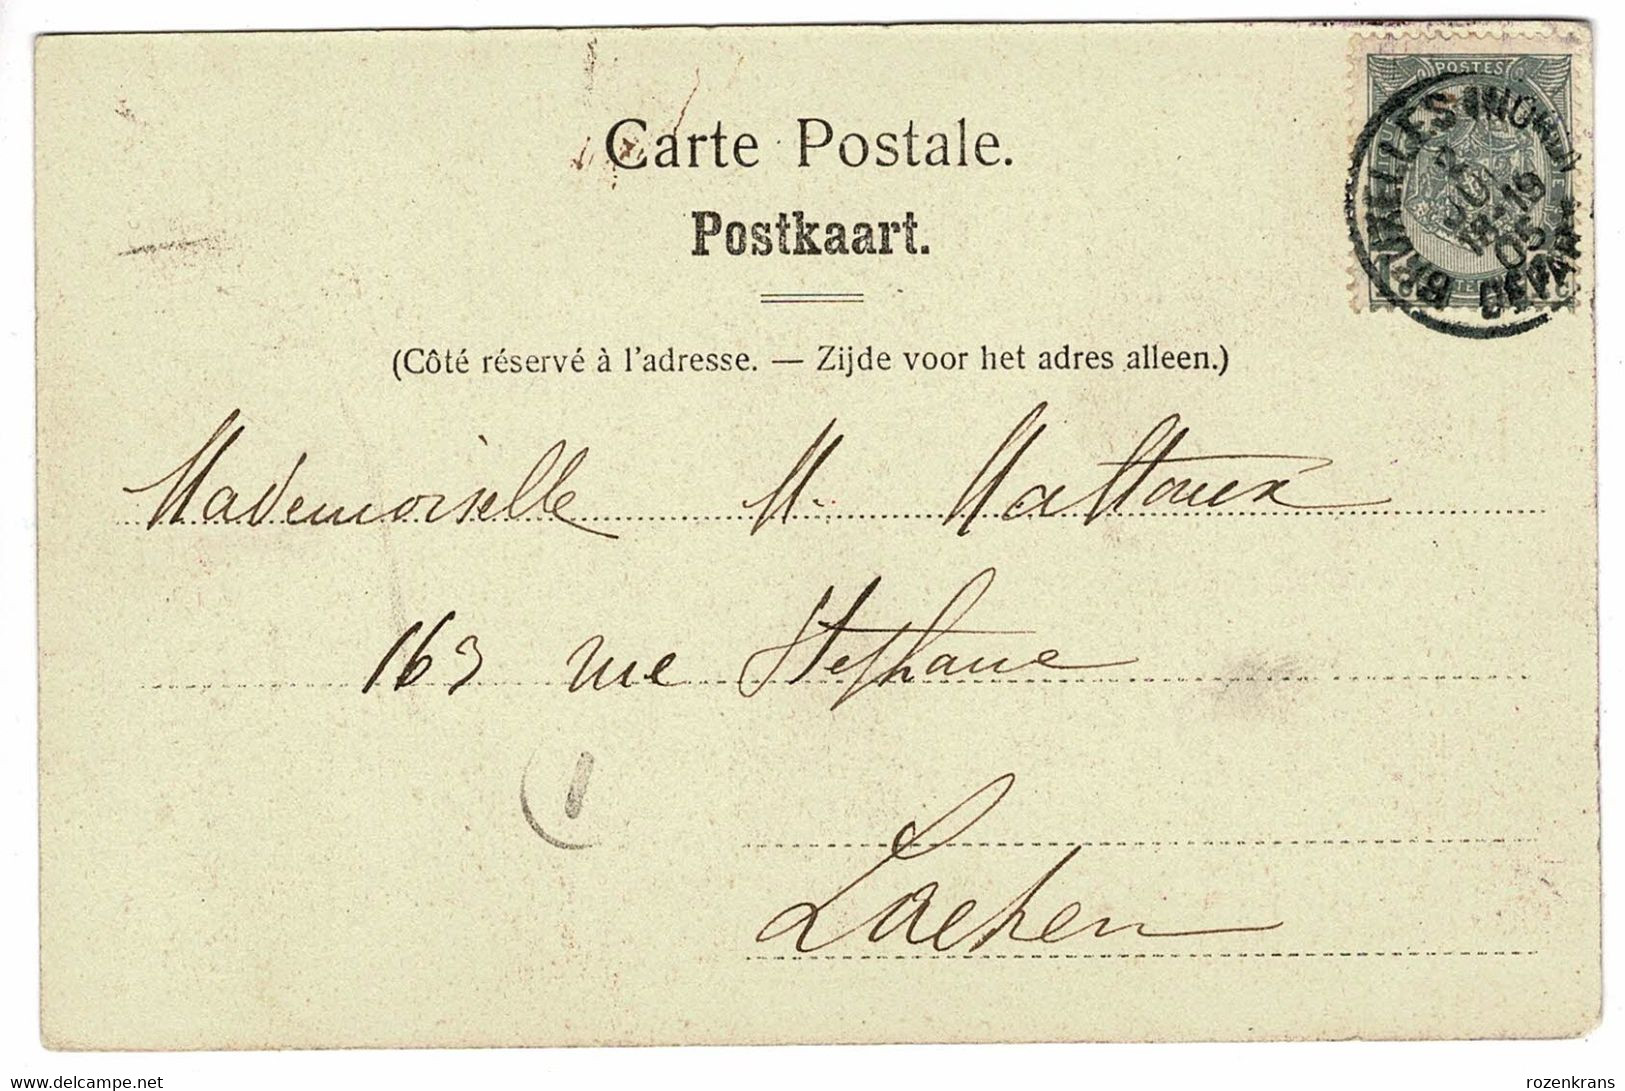 Carte Postale.
Postkaart.
POSTES
BRUXELLES (NORD)
18-19
05
DEPART
(Côté réservé à l'adresse. — Zijde voor het adres alleen.)
Mademoiselle M. Mattoux
163 rue Stephanie
1
Laeken
delcampe.net
rozenkrans